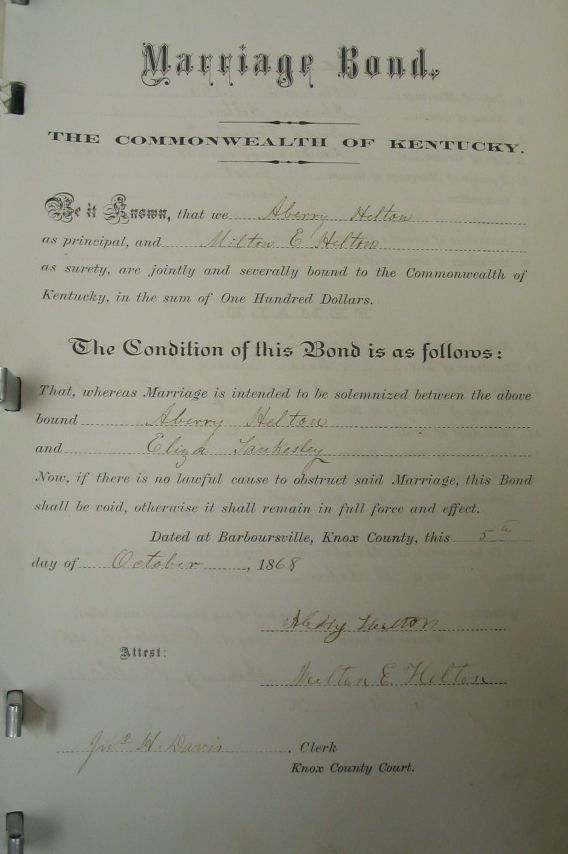 Marriage Bond.
THE COMMONWEALTH OF KENTUCKY.
Be it Known, that we Aberry Helton
as principal, and Milton E Helton
as surety, are jointly and severally bound to the Commonwealth of
Kentucky, in the sum of One Hundred Dollars.
The Condition of this Bond is as follows:
That, whereas Marriage is intended to be solemnized between the above
bound Aberry Helton
and Eliza Tankesley
Now, if there is no lawful cause to obstruct said Marriage, this Bond
shall be void, otherwise it shall remain in full force and effect.
Dated at Barboursville, Knox County, this 5th
day of October, 1868
Helton
Attest:
Milton E Helton
Jno H. Davis, Clerk
Knox County Court.